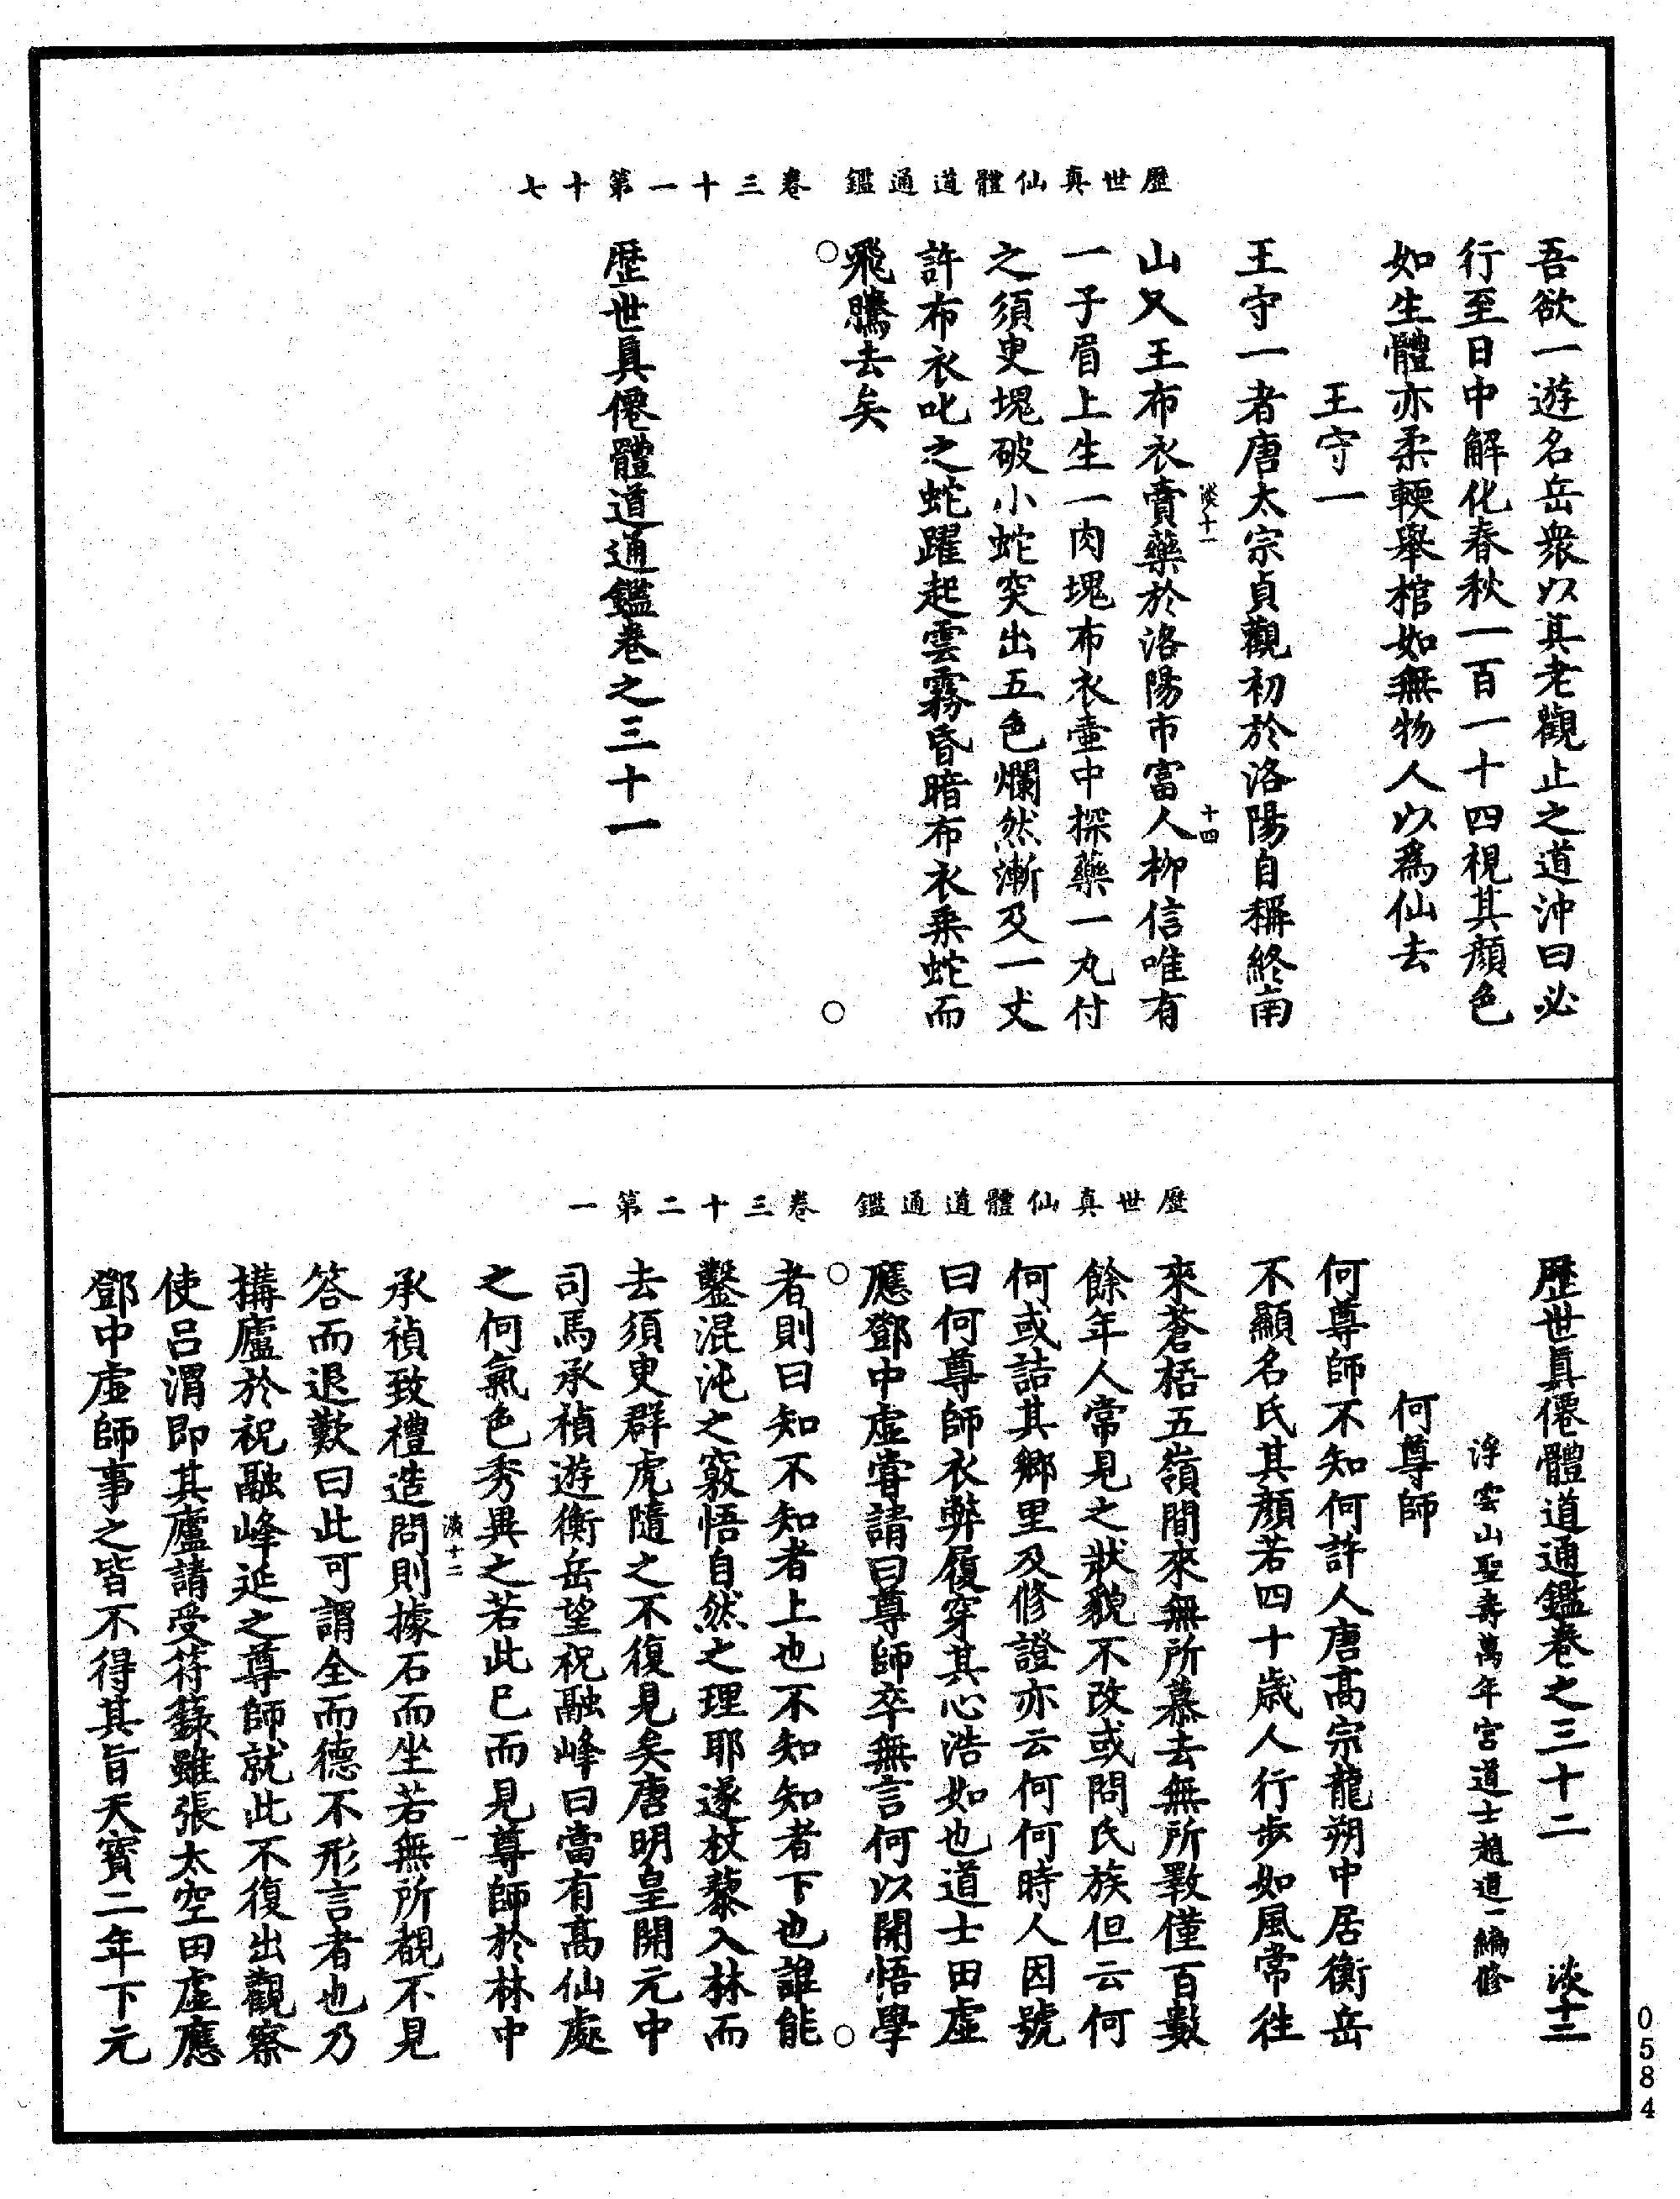 歷世真仙體道通鑑　卷三十一第十七
吾欲一遊名岳衆以其老觀止之道沖曰必
行至日中解化春秋一百一十四視其顏色
如生體亦柔輭舉棺如無物人以爲仙去
王守一
王守一者唐太宗貞觀初於洛陽自稱終南
淡十一　十四
山又王布衣賣藥於洛陽市富人柳信唯有
一子眉上生一肉塊布衣壷中探藥一丸付
之須臾塊破小蛇突出五色爛然漸及一丈
許布衣叱之蛇躍起雲霧昏暗布衣乗蛇而
○飛騰去矣　○
歷世眞僊體道通鑑卷之三十一
歷世真仙體道通鑑　卷三十二第一
歷世眞僊體道通鑑卷之三十二　淡十二
浮雲山聖壽萬年宮道士趙道一編修
何尊師
何尊師不知何許人唐髙宗龍朔中居衡岳
不顯名氏其顏若四十歲人行步如風常往
來蒼梧五嶺間來無所慕去無所斁僅百數
餘年人常見之狀貌不改或問氏族但云何
何或詰其鄉里及修證亦云何何時人因號
曰何尊師衣弊履穿其心浩如也道士田虛
應鄧中虛嘗請曰尊師卒無言何以開悟學
○者則曰知不知者上也不知知者下也誰能○
鑿混沌之竅悟自然之理耶遂杖藜入林而
去須臾群虎隨之不復見矣唐明皇開元中
司馬承楨遊衡岳望祝融峰曰當有髙仙處
之何氣色秀異之若此已而見尊師於林中
淡十二　一
承禎致禮造問則據石而坐若無所覩不見
答而退歎曰此可謂全而德不形言者也乃
搆廬於祝融峰延之尊師就此不復出觀察
使吕渭即其廬請受符籙雖張太空田虛應
鄧中虛師事之皆不得其旨天寶二年下元
0584